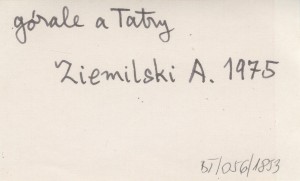 górale a Tatry
Ziemilski A. 1975
BT/056/1853